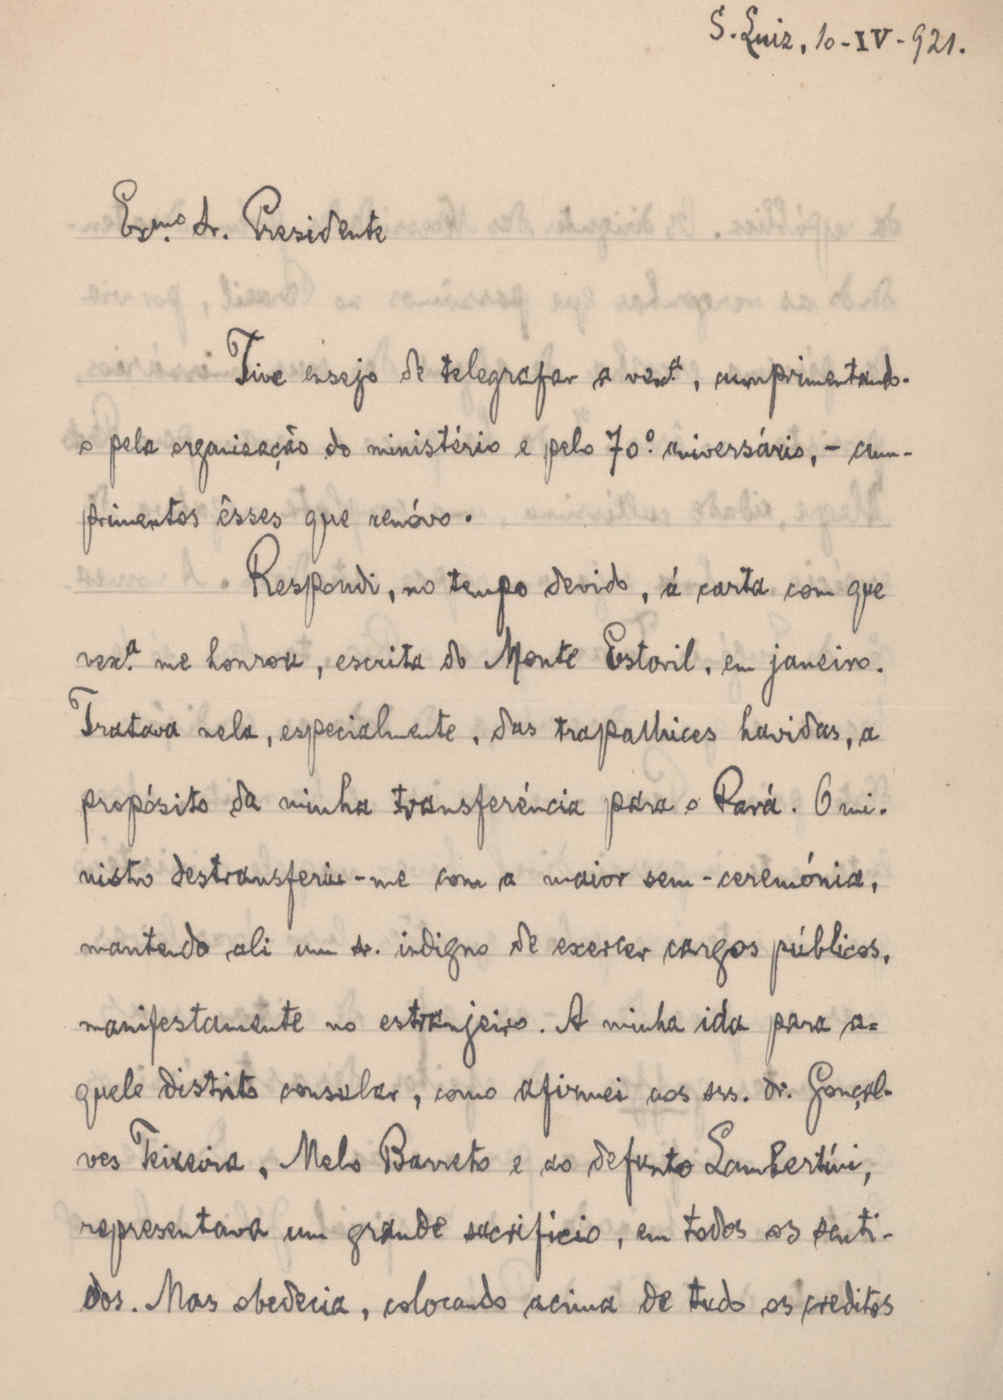 S. Luiz, 10-IV-921.
Ex.mo Sr. Presidente
Tive ensejo de telegrafar a vex.ª, cumprimentando-
o pela organisação do ministério e pelo 70.º aniversário, - cum-
primentos êsses que renóvo.
Respondi, no tempo devido, á carta com que
vex.ª me honrou, escrita do Monte Estoril, em janeiro.
Tratava nela, especialmente, das trapalhices havidas, a
propósito da minha transferéncia para o Pará. O mi-
nistro destransferiu-me com a maior sem-ceremónia,
mantendo ali um sr. indigno de exercer cargos públicos,
manifestamente no estranjeiro. A minha ida para a=
quele distrito consular, como afirmei aos srs. dr. Gonçal-
ves Teixeira, Melo Barreto e ao defunto Lambertíni,
representava um grande sacrificio, em todos os senti-
dos. Mas obedecia, colocando acima de tudo os creditos